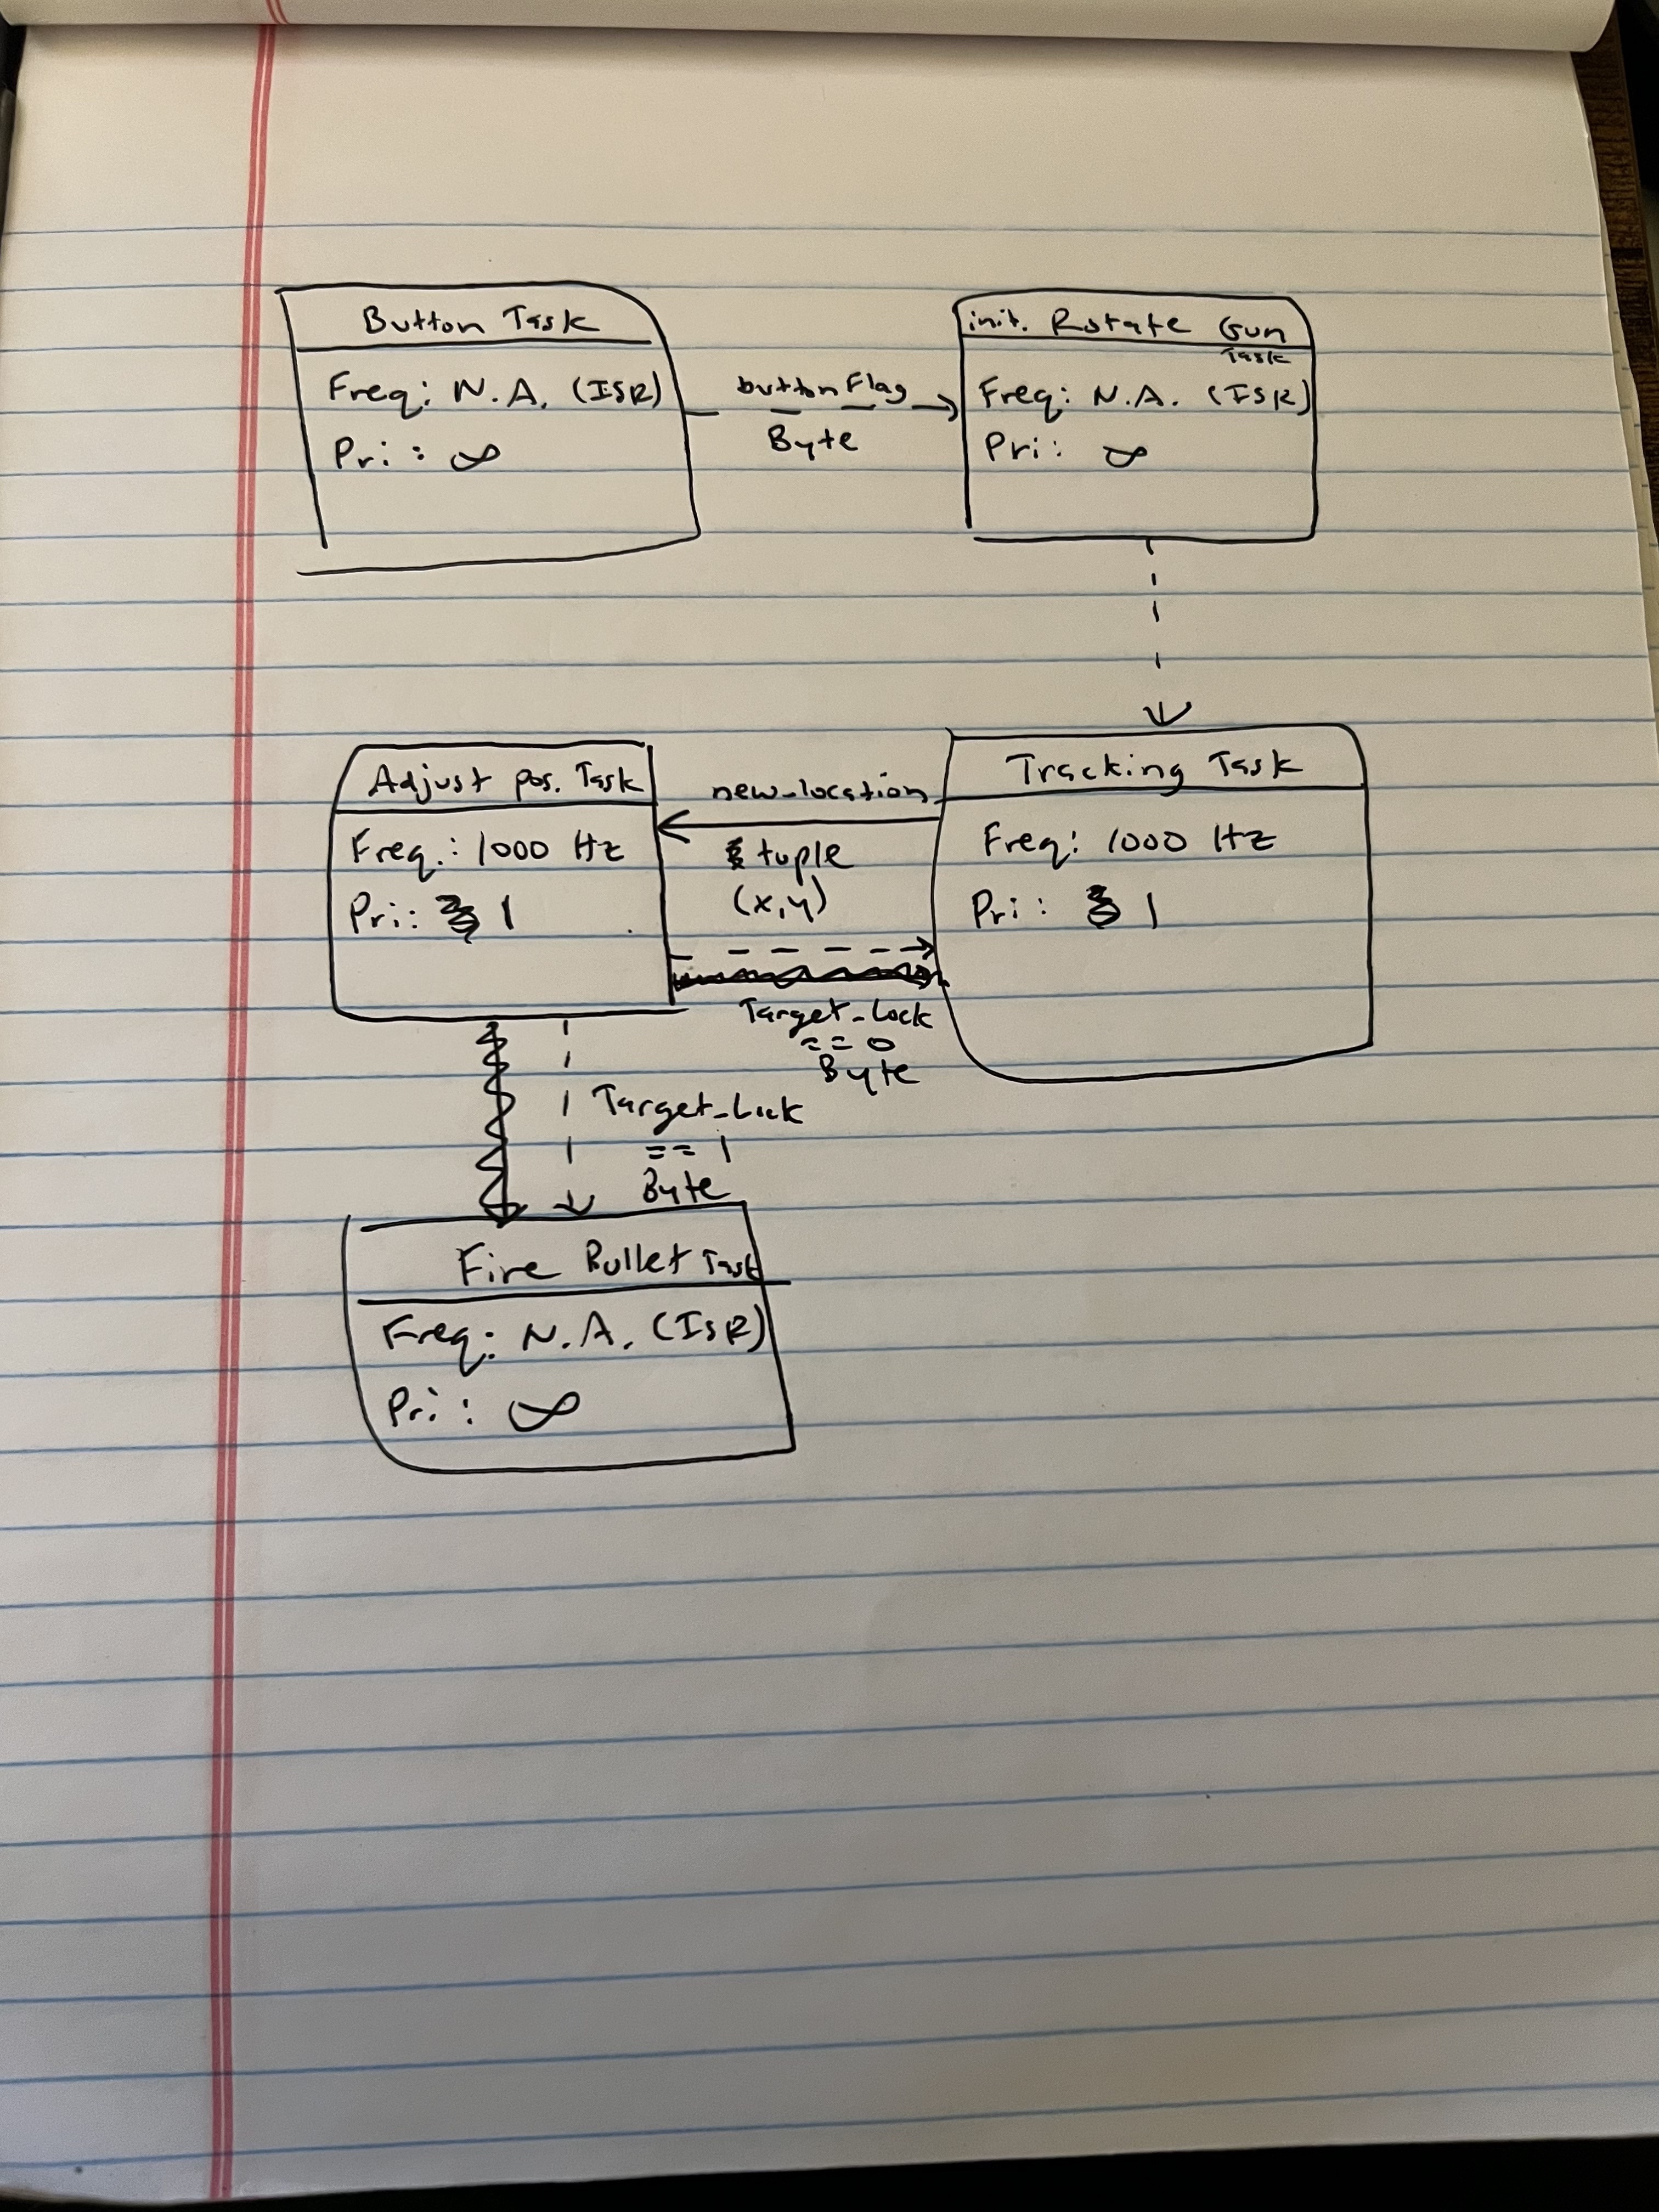 Button Task
Freq: N.A. (ISR)
Pri: ∞
buttonFlag
Byte
init. Rotate Gun
Task
Freq: N.A. (ISR)
Pri: ∞
Adjust pos. Task
Freq.: 1000 Hz
Pri: 1
new_location
tuple
(x,y)
Target_Lock
== 0
Byte
Tracking Task
Freq: 1000 Hz
Pri: 1
Target_Lock
== 1
Byte
Fire Bullet Task
Freq: N.A. (ISR)
Pri: ∞